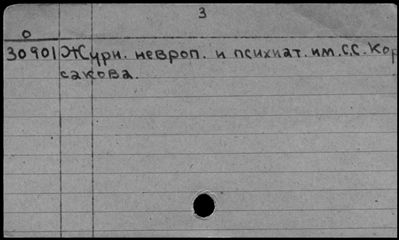 3
О
30901 Журн. невроп. и психиат. им. С.С. Кор
сакова.